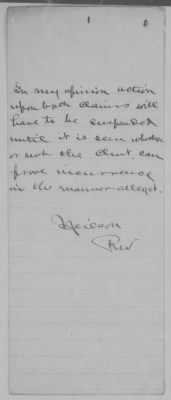 In my opinion action
upon both claims will
have to be suspended
until it is seen whether
or not the clmt. can
prove incurrence
in the manner alleged.
Neilson
Rev